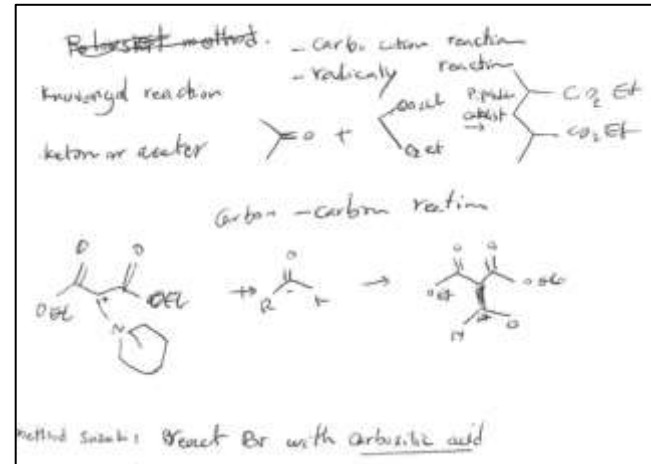 method. - carbo cition reaction
- radicaly reaction
Knuvengd reaction
keton or aceter
O + CO2Et
O2et
catalist
→
CO2 Et
CO2Et
Carbon - carbon reation
O O
OEt OEt
N
+ O
R H
→
O O
OEt OEt
H O
method Suzuki: react Br with carboxilic acid